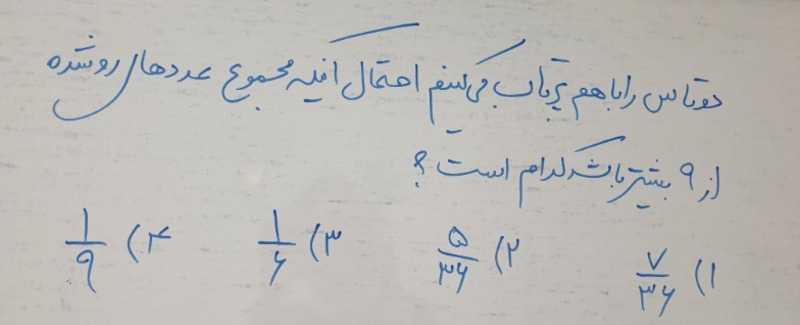 دو تاس را با هم پرتاب می‌کنیم احتمال آنکه مجموع عددهای رو شده
از ۹ بیشتر باشد کدام است؟
۱) ۷/۳۶ ۲) ۵/۳۶ ۳) ۱/۶ ۴) ۱/۹